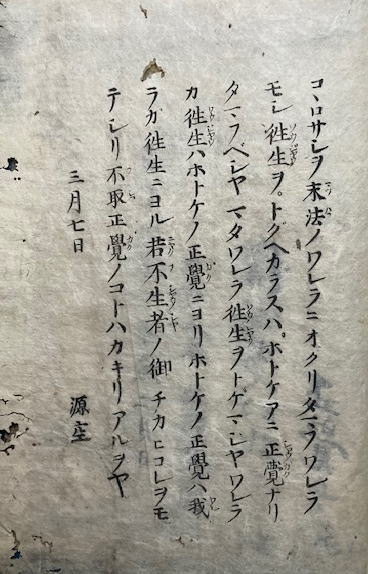 コヽロサシヲ末法ノワレラニオクリタマフワレラ
モシ徃生ヲ。トグヘカラスハ。ホトケアニ正覺ナリ
タマフベシヤマタワレラ徃生ヲトゲマシヤワレラ
カ徃生ハホトケノ正覺ニヨリホトケノ正覺ハ我
ラガ徃生ニヨル若不生者ノ御チカヒコレヲモ
テシリ不取正覺ノコトハカキリアルヲヤ
三月七日
源空